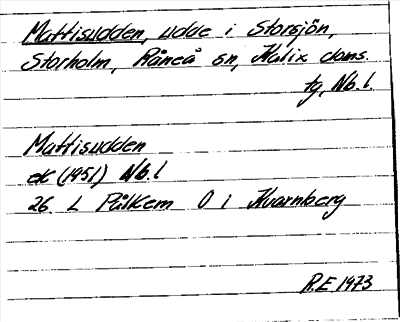 Mattisudden, udde i Storsjön,
Storholm, Råneå sn, Kalix doms.
tg, Nb.l.
Mattisudden
ek (1951) Nb.l
26. L Pålkem O i Kvarnberg
R.E 1973